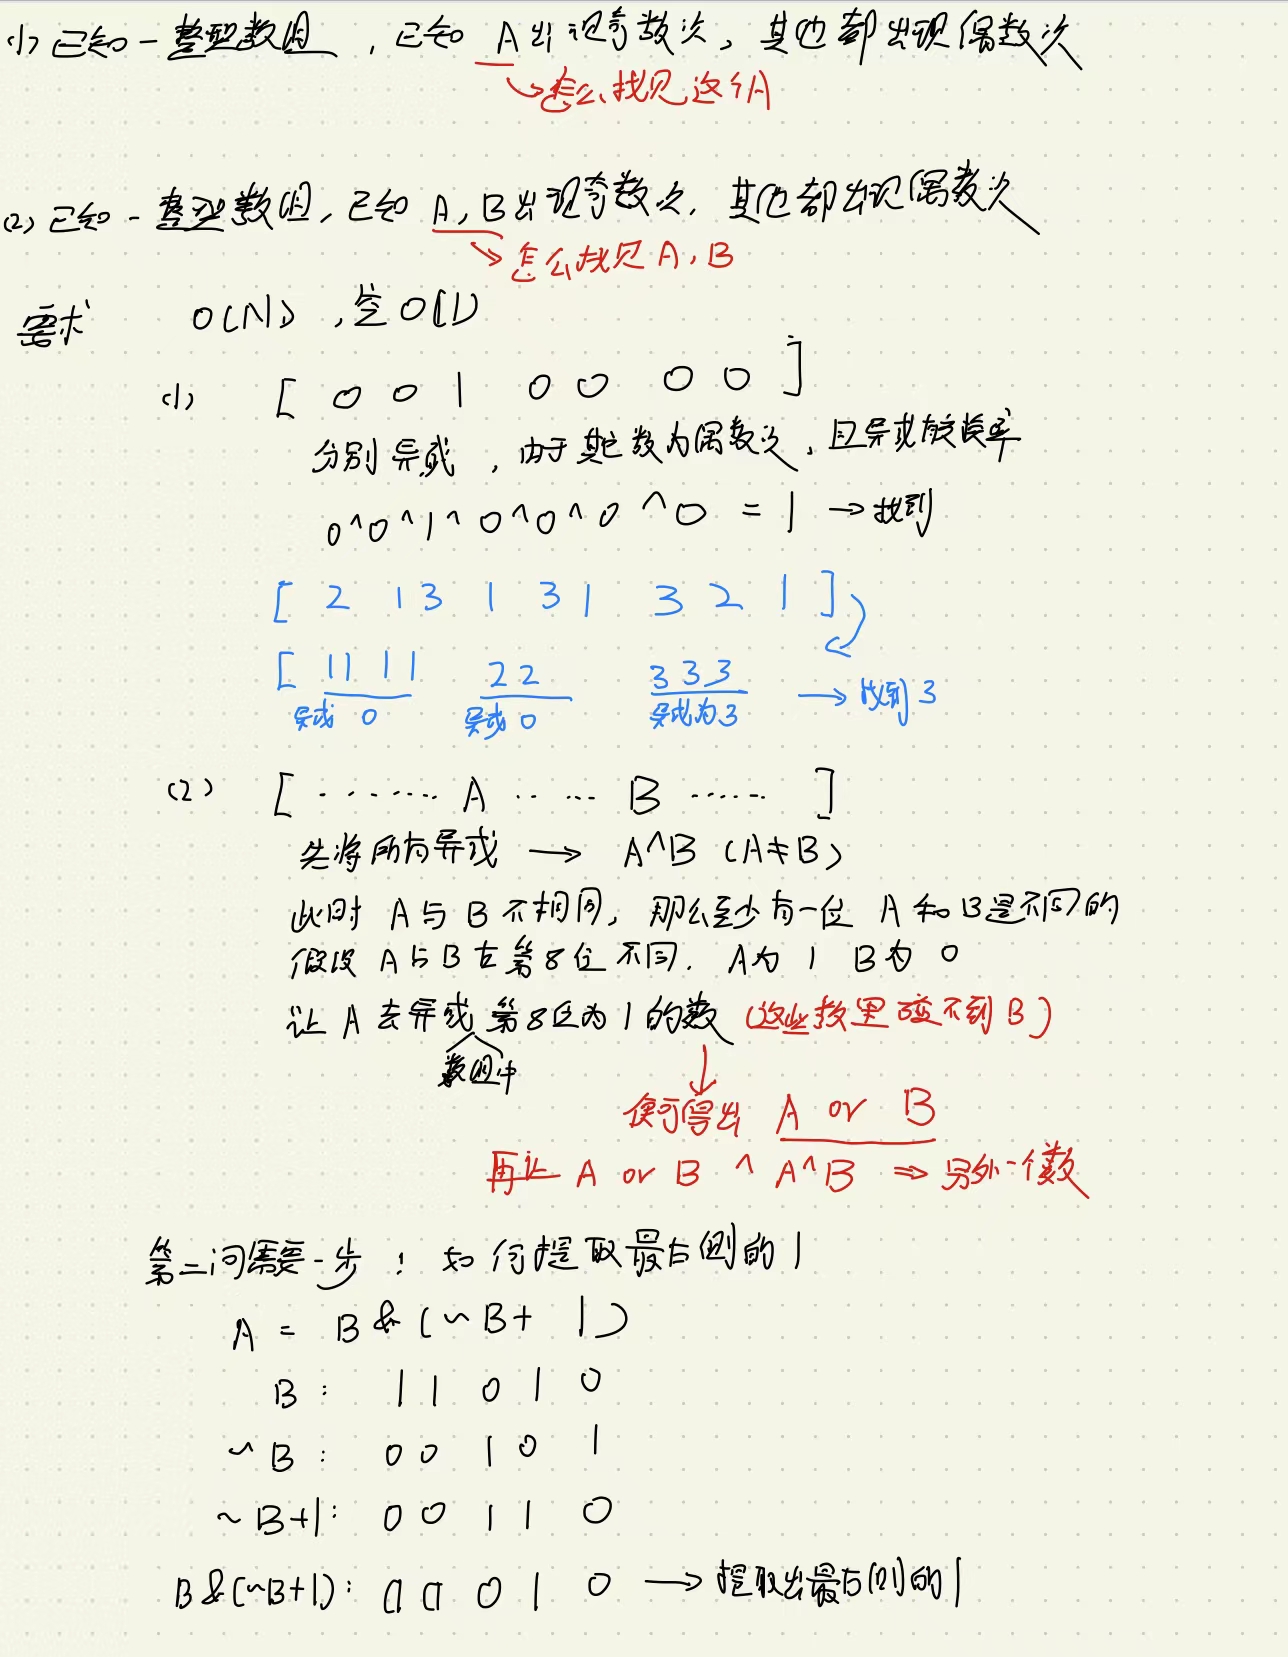 (1) 已知一整型数组，已知 A 出现奇数次，其他都出现偶数次
怎么找见这个A
(2) 已知一整型数组，已知 A，B出现奇数次，其他都出现偶数次
怎么找见 A，B
要求 O(N)，空O(1)
(1) [ 0 0 1 0 0 0 0 ]
分别异或，由于其它数为偶数次，且异或有交换率
0^0^1^0^0^0^0 = 1 → 找到
[ 2 1 3 1 3 1 3 2 1 ]
[ 1 1 1 1 2 2 3 3 3
异或 0 异或 0 异或为3 → 找到 3
(2) [ ········ A ····· B ······ ]
先将所有异或 → A^B (A≠B)
此时 A 与 B 不相同，那么至少有一位 A 和 B是不同的
假设 A与B 在第8位不同. A为 1 B为 0
让 A 去异或 第8位为1的数 (这些数里碰不到B)
数组中
便可得出 A or B
再让 A or B ^ A^B ⇒ 另外一个数
第二问需要一步：如何提取最右侧的1
A = B & (~B+ 1)
B : 1 1 0 1 0
~B : 0 0 1 0 1
~B+1: 0 0 1 1 0
B&(~B+1): 0 0 0 1 0 → 提取出最右侧的1